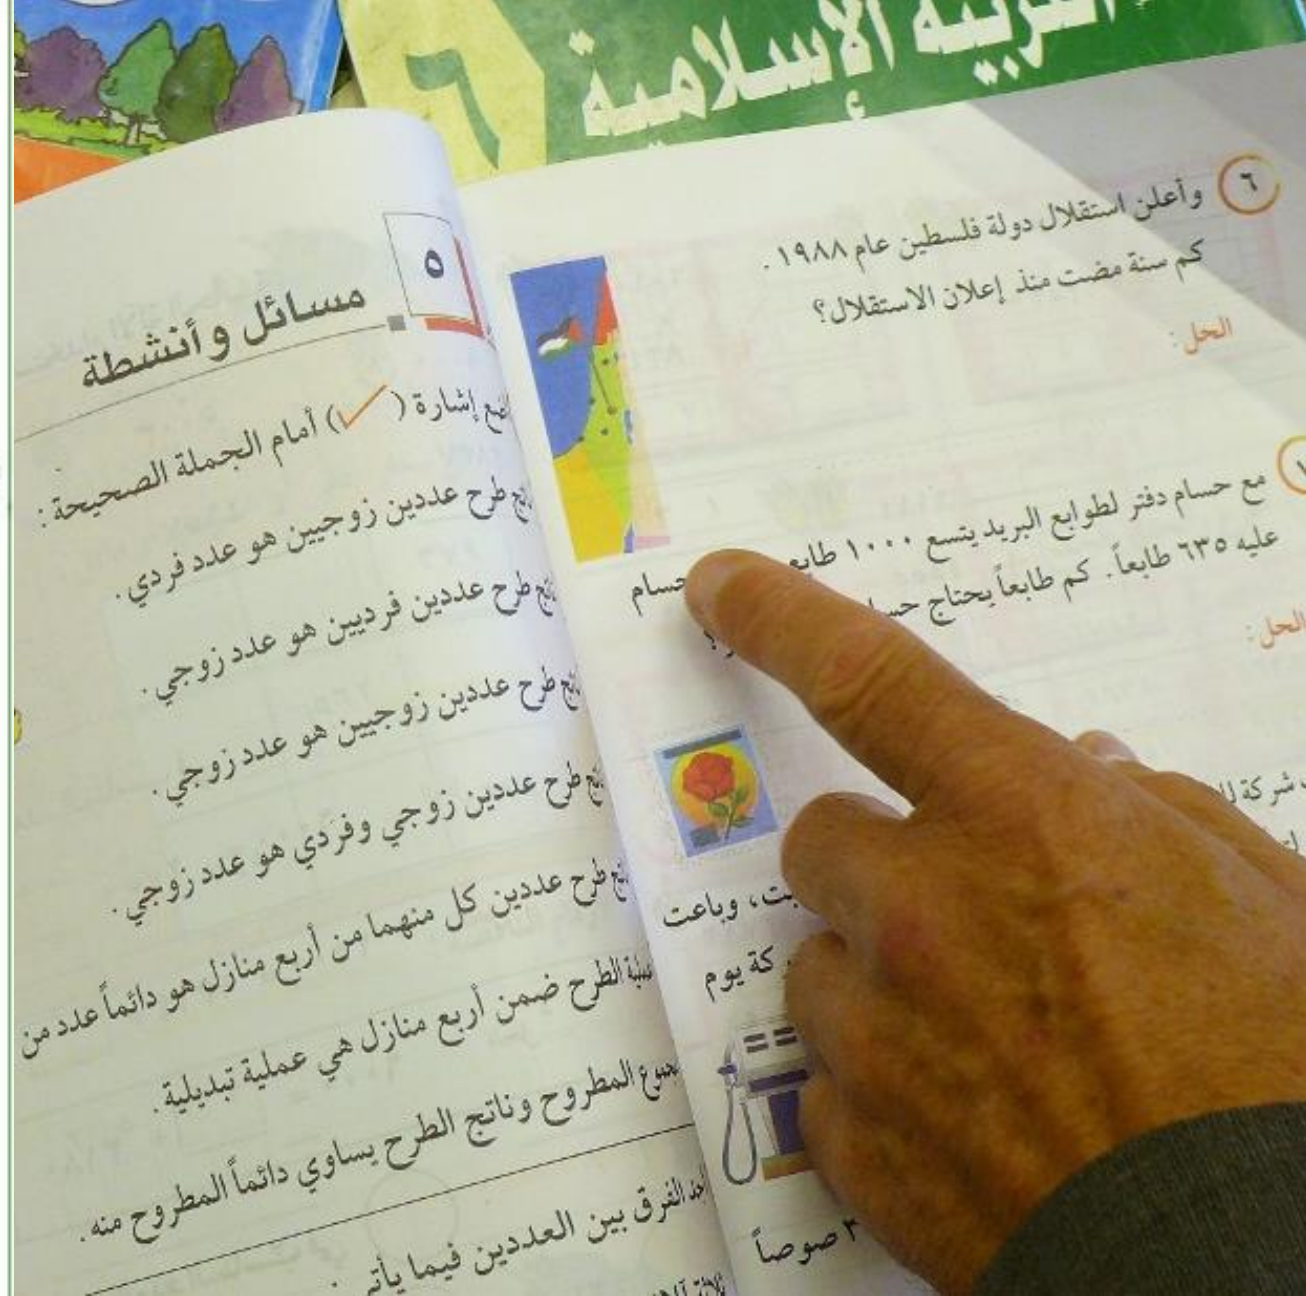 التربية الإسلامية
٦
٦
وأعلن استقلال دولة فلسطين عام ١٩٨٨ .
كم سنة مضت منذ إعلان الاستقلال؟
الحل :
مع حسام دفتر لطوابع البريد يتسع ١٠٠٠ طابع حسام
عليه ٦٣٥ طابعاً. كم طابعاً يحتاج
الحل :
شركة
وباعت
يوم
٣ صوصاً
٥
مسائل وأنشطة
إشارة ( ✓ ) أمام الجملة الصحيحة :
طرح عددين زوجيين هو عدد فردي .
طرح عددين فرديين هو عدد زوجي .
طرح عددين زوجيين هو عدد زوجي .
طرح عددين زوجي وفردي هو عدد زوجي .
طرح عددين كل منهما من أربع منازل هو دائماً عدد من
الطرح ضمن أربع منازل هي عملية تبديلية .
المطروح وناتج الطرح يساوي دائماً المطروح منه .
الفرق بين العددين فيما يأتي :